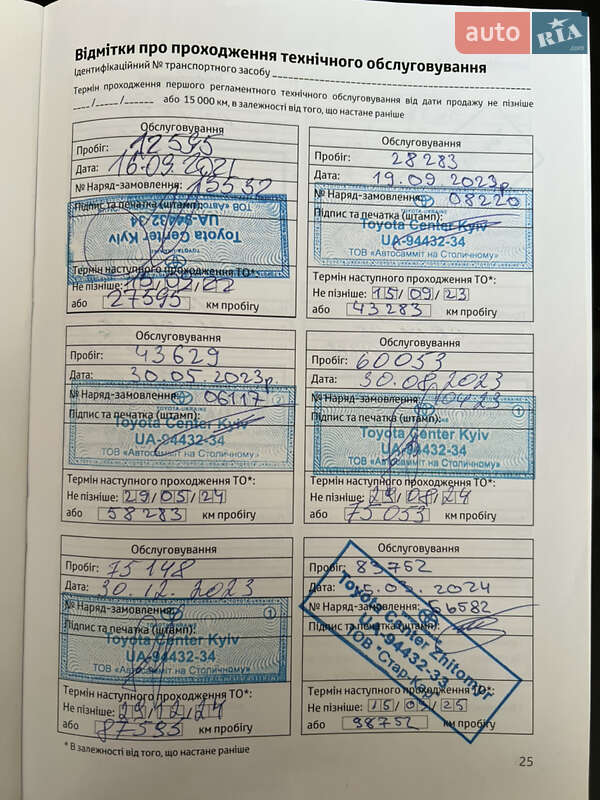 auto RIA.com
Відмітки про проходження технічного обслуговування
Ідентифікаційний № транспортного засобу
Термін проходження першого регламентного технічного обслуговування від дати продажу не пізніше
___/____/______ або 15 000 км, в залежності від того, що настане раніше
Обслуговування
Пробіг: 12595
Дата: 16.09.2021
№ Наряд-замовлення: 13532
Підпис та печатка (штамп):
Toyota Center Kyiv
UA-94432-34
Термін наступного проходження ТО*:
Не пізніше:
або 27595 км пробігу
Обслуговування
Пробіг: 28283
Дата: 19.09.2023р
№ Наряд-замовлення: 08220
Підпис та печатка (штамп):
Toyota Center Kyiv
UA-94432-34
ТОВ «Автосамміт на Столичному»
Термін наступного проходження ТО*:
Не пізніше: 15/09/23
або 43283 км пробігу
Обслуговування
Пробіг: 43629
Дата: 30.05.2023р
№ Наряд-замовлення: 06117
TOYOTA-UKRAINE
Підпис та печатка (штамп):
Toyota Center Kyiv
UA-94432-34
ТОВ «Автосамміт на Столичному»
Термін наступного проходження ТО*:
Не пізніше: 29/05/24
або 58283 км пробігу
Обслуговування
Пробіг: 60053
Дата: 30.08.2023
№ Наряд-замовлення: 10423
Підпис та печатка (штамп):
Toyota Center Kyiv
UA-94432-34
ТОВ «Автосамміт на Столичному»
Термін наступного проходження ТО*:
Не пізніше: 29/08/24
або 75053 км пробігу
Обслуговування
Пробіг: 75148
Дата: 30.12.2023
№ Наряд-замовлення:
Підпис та печатка (штамп):
Toyota Center Kyiv
UA-94432-34
ТОВ «Автосамміт на Столичному»
Термін наступного проходження ТО*:
Не пізніше: 29/12/24
або 87593 км пробігу
Обслуговування
Пробіг: 83752
Дата: 2024
№ Наряд-замовлення: 66582
Підпис та печатка (штамп):
Toyota Center Zhitomyr
UA-94432-33
ТОВ "Стар-Кар"
Термін наступного проходження ТО*:
Не пізніше: 15/05/25
або 98752 км пробігу
* В залежності від того, що настане раніше
25